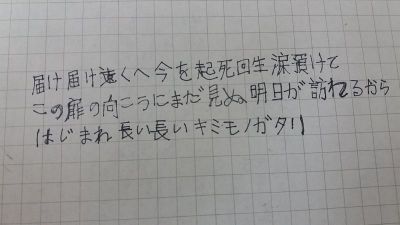 届け届け遠くへ今を起死回生涙預けて
この扉の向こうにまだ見ぬ明日が訪れるから
はじまれ長い長いキミモノガタリ